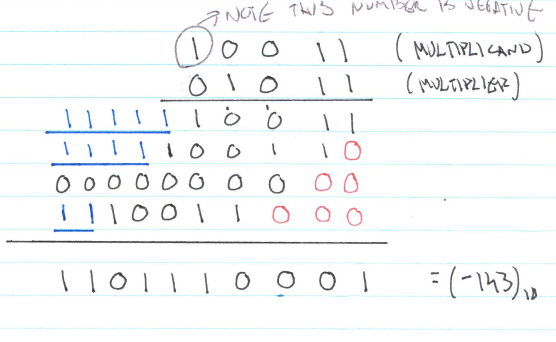 NOTE THIS NUMBER IS NEGATIVE
1 0 0 1 1 (MULTIPLICAND)
0 1 0 1 1 (MULTIPLIER)
1 1 1 1 1 1 0 0 1 1
1 1 1 1 1 0 0 1 1 0
0 0 0 0 0 0 0 0 0 0
1 1 1 0 0 1 1 0 0 0
1 1 0 1 1 1 0 0 0 1 = (-143)₁₀